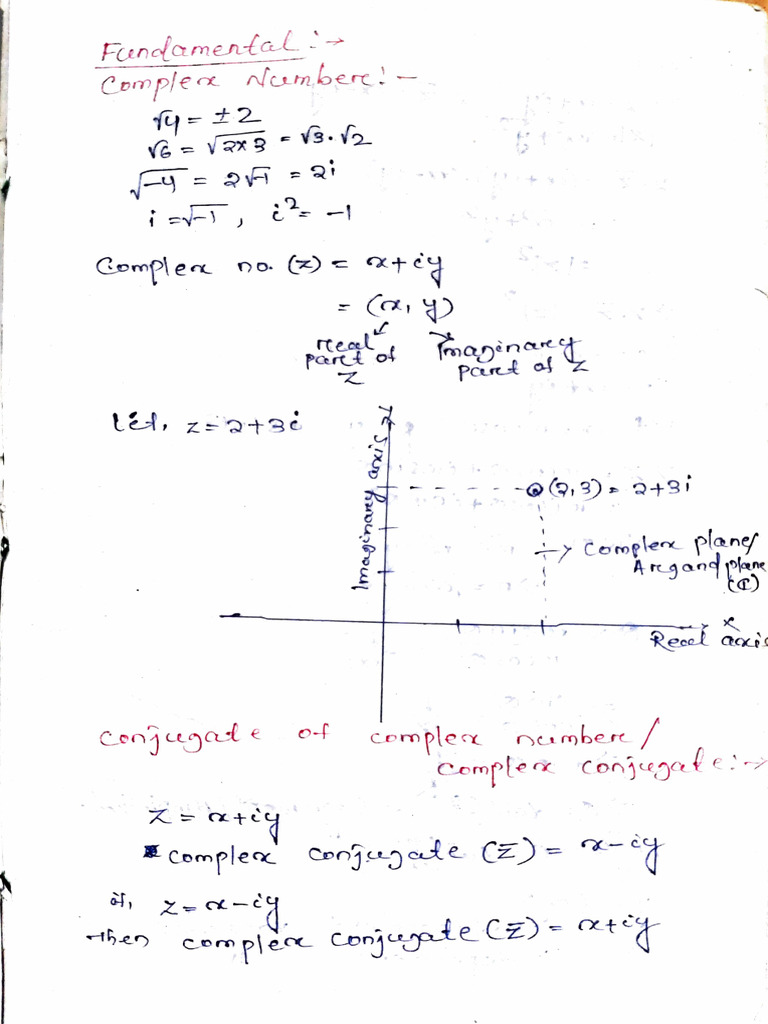 Fundamental :→
Complex Number :-
√4 = ±2
√6 = √2×3 = √3.√2
√-4 = 2√-1 = 2i
i = √-1 , i² = -1
Complex no. (z) = x+iy
= (x, y)
real part of z
Imaginary part of z
Let, z = 2+3i
Imaginary axis
(2,3) = 2+3i
→ Complex plane/
Argand plane
(ℂ)
x
Real axis
Conjugate of complex number/
complex conjugate :→
z = x+iy
complex conjugate (z̅) = x-iy
if, z = x-iy
then complex conjugate (z̅) = x+iy